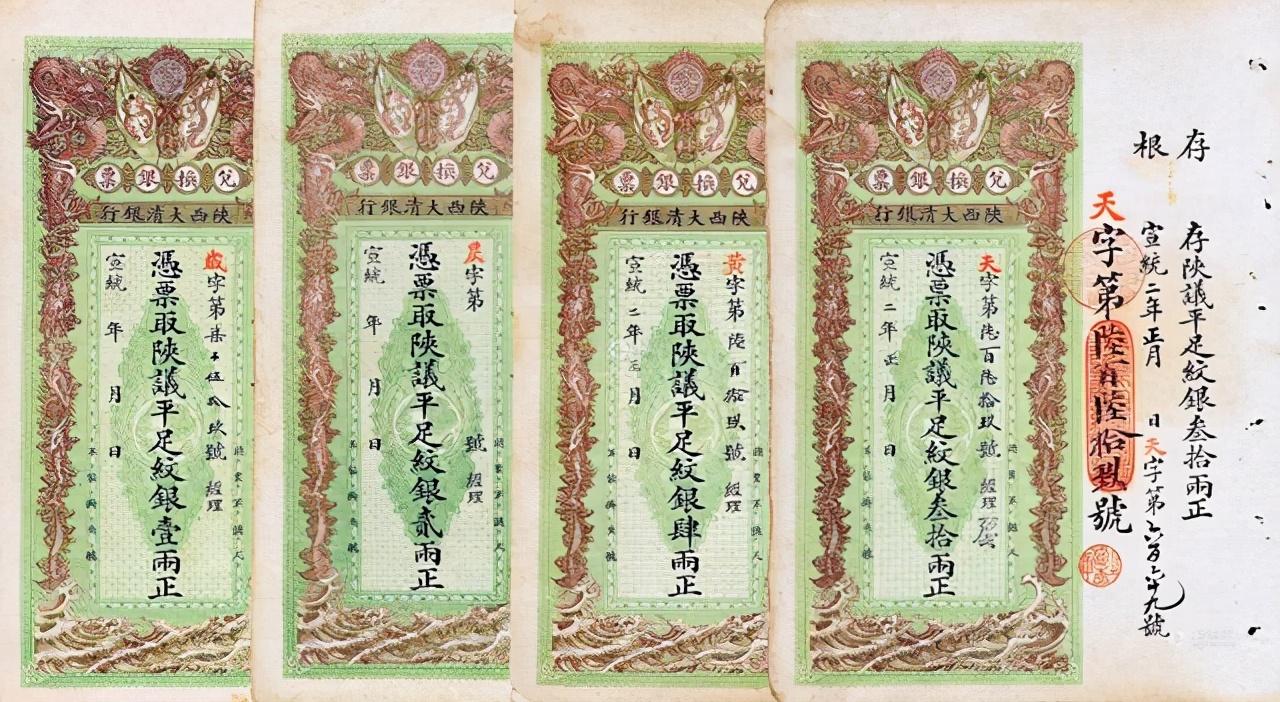 兌換銀票
陝西大清銀行
成字第柒千伍拾玖號 經理
憑票取陝議平足紋銀壹兩正
宣統 年 月 日
兌換銀票
陝西大清銀行
辰字第 號 經理
憑票取陝議平足紋銀貳兩正
宣統 年 月 日
兌換銀票
陝西大清銀行
黃字第陸百拾玖號 經理
憑票取陝議平足紋銀肆兩正
宣統二年正月 日
兌換銀票
陝西大清銀行
天字第陸百陸拾玖號 經理
認票不認人
憑票取陝議平足紋銀叁拾兩正
宣統二年正月 日
存根
存陝議平足紋銀叁拾兩正
宣統二年正月 日天字第六百六十九號
天字第陸百陸拾玖號